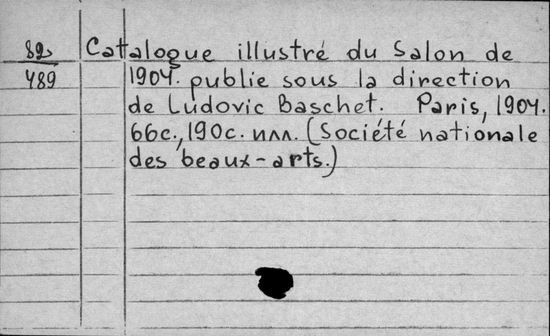 82 Catalogue illustré du Salon de
489 1904. publie sous la direction
de Ludovic Baschet. Paris, 1904.
66с., 190с. илл. (Société nationale
des beaux-arts.)